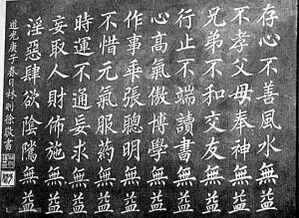 存心不善風水無益
不孝父母奉神無益
兄弟不和交友無益
行止不端讀書無益
心高氣傲博學無益
作事乖張聰明無益
不惜元氣服药無益
時運不通妄求無益
妄取人財佈施無益
淫惡肆欲陰隲無益
道光庚子春日林則徐敬書